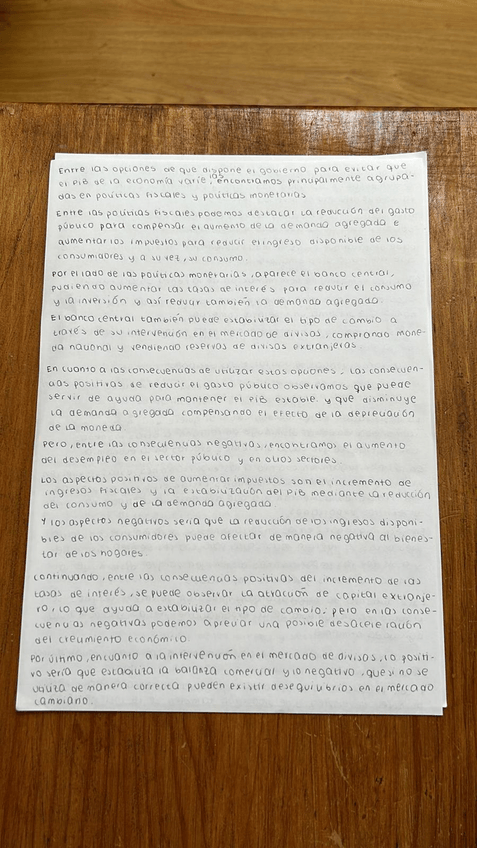 Entre las opciones de que dispone el gobierno para evitar que
el PIB de la economía varíe, las encontramos principalmente agrupa-
das en políticas fiscales y políticas monetarias.
Entre las políticas fiscales podemos destacar la reducción del gasto
público para compensar el aumento de la demanda agregada e
aumentar los impuestos para reducir el ingreso disponible de los
consumidores y a su vez, su consumo.
Por el lado de las políticas monetarias, aparece el banco central,
pudiendo aumentar las tasas de interés para reducir el consumo
y la inversión y así reducir también la demanda agregada.
El banco central también puede estabilizar el tipo de cambio a
través de su intervención en el mercado de divisas, comprando mone-
da nacional y vendiendo reservas de divisas extranjeras.
En cuanto a las consecuencias de utilizar estas opciones, las consecuen-
cias positivas de reducir el gasto público observamos que puede
servir de ayuda para mantener el PIB estable y que disminuye
la demanda agregada compensando el efecto de la depreciación
de la moneda.
Pero, entre las consecuencias negativas, encontramos el aumento
del desempleo en el sector público y en otros sectores.
Los aspectos positivos de aumentar impuestos son el incremento de
ingresos fiscales y la estabilización del PIB mediante la reducción
del consumo y de la demanda agregada.
Y los aspectos negativos sería que la reducción de los ingresos disponi-
bles de los consumidores puede afectar de manera negativa al bienes-
tar de los hogares.
Continuando, entre las consecuencias positivas del incremento de las
tasas de interés, se puede observar la atracción de capital extranje-
ro, lo que ayuda a estabilizar el tipo de cambio; pero en las conse-
cuencias negativas podemos apreciar una posible desaceleración
del crecimiento económico.
Por último, en cuanto a la intervención en el mercado de divisas, lo positi-
vo sería que estabiliza la balanza comercial y lo negativo, que si no se
realiza de manera correcta pueden existir desequilibrios en el mercado
cambiario.